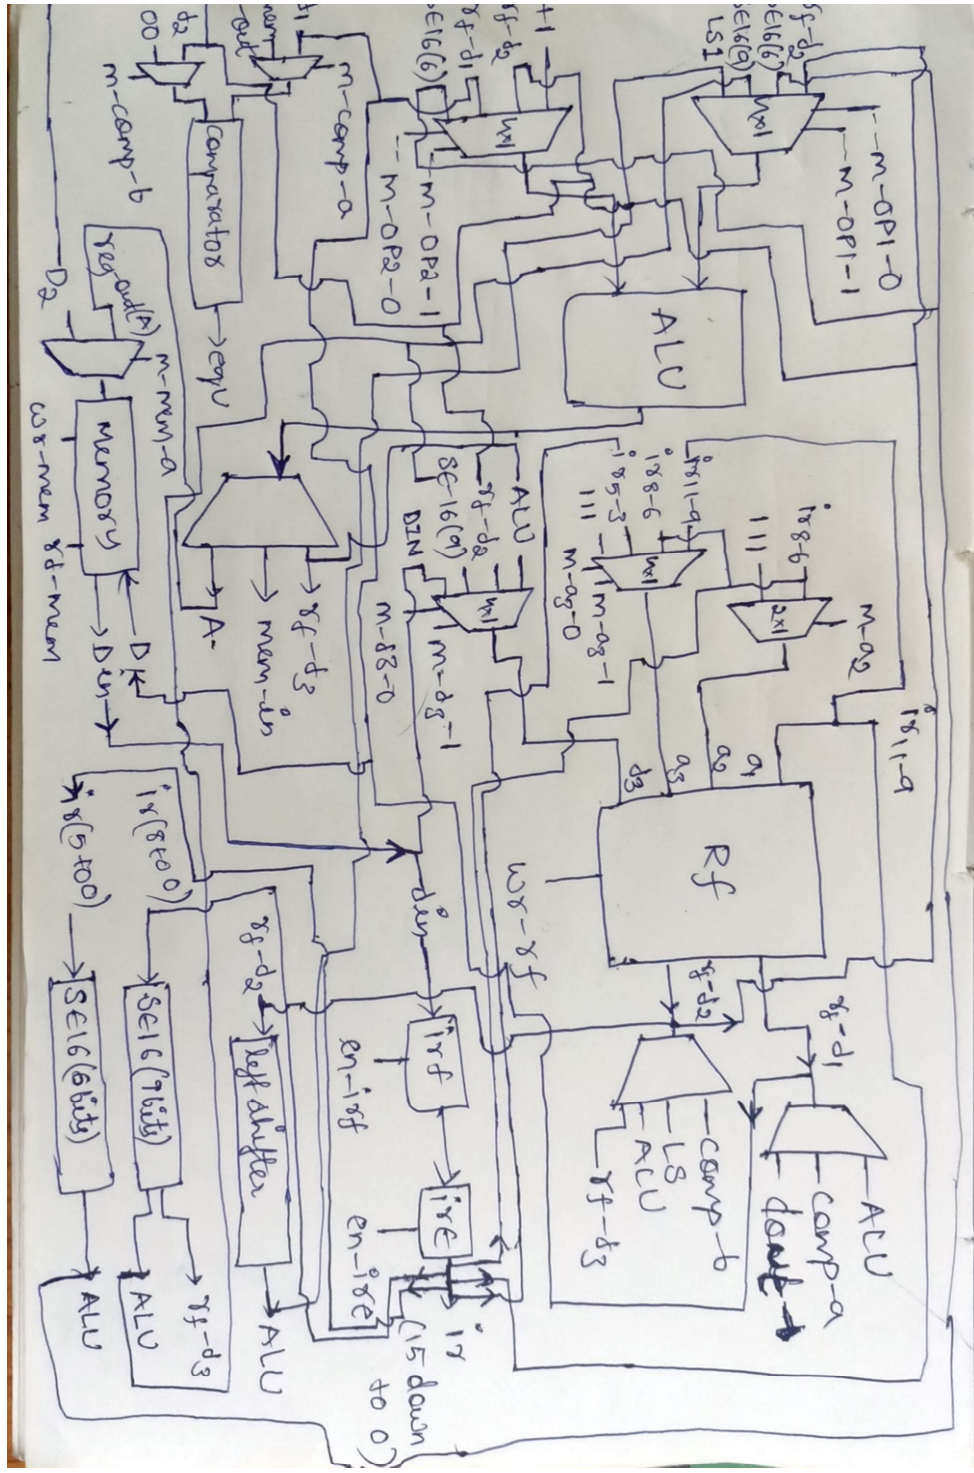 rf-d2
SE16(6)
SE16(9)
LS1
4x1
m-OP1-0
m-OP1-1
+1
rf-d2
rf-d1
SE16(6)
4x1
m-OP2-1
m-OP2-0
ALU
d1
mem
out
m-comp-a
d2
00
m-comp-b
comparator
eqv
reg out(A)
D2
m-mem-a
memory
wr-mem
rd-mem
Den
A
mem-in
rf-d3
ALU
rf-d2
SE-16(9)
DIN
4x1
m-d3-1
m-d3-0
ir11-9
ir8-6
ir5-3
111
4x1
m-a3-1
m-a3-0
ir8-6
111
2x1
m-a2
ir11-9
a1
a2
a3
d3
Rf
wr-rf
rf-d1
rf-d2
ALU
comp-a
comp-b
LS
ALU
rf-d3
din
irf
en-irf
irE
en-irE
ir
(15 down
to 0)
rf-d2
left shifter
ALU
ir(8to0)
SE16(9bits)
rf-d3
ALU
ir(5to0)
SE16(6bits)
ALU